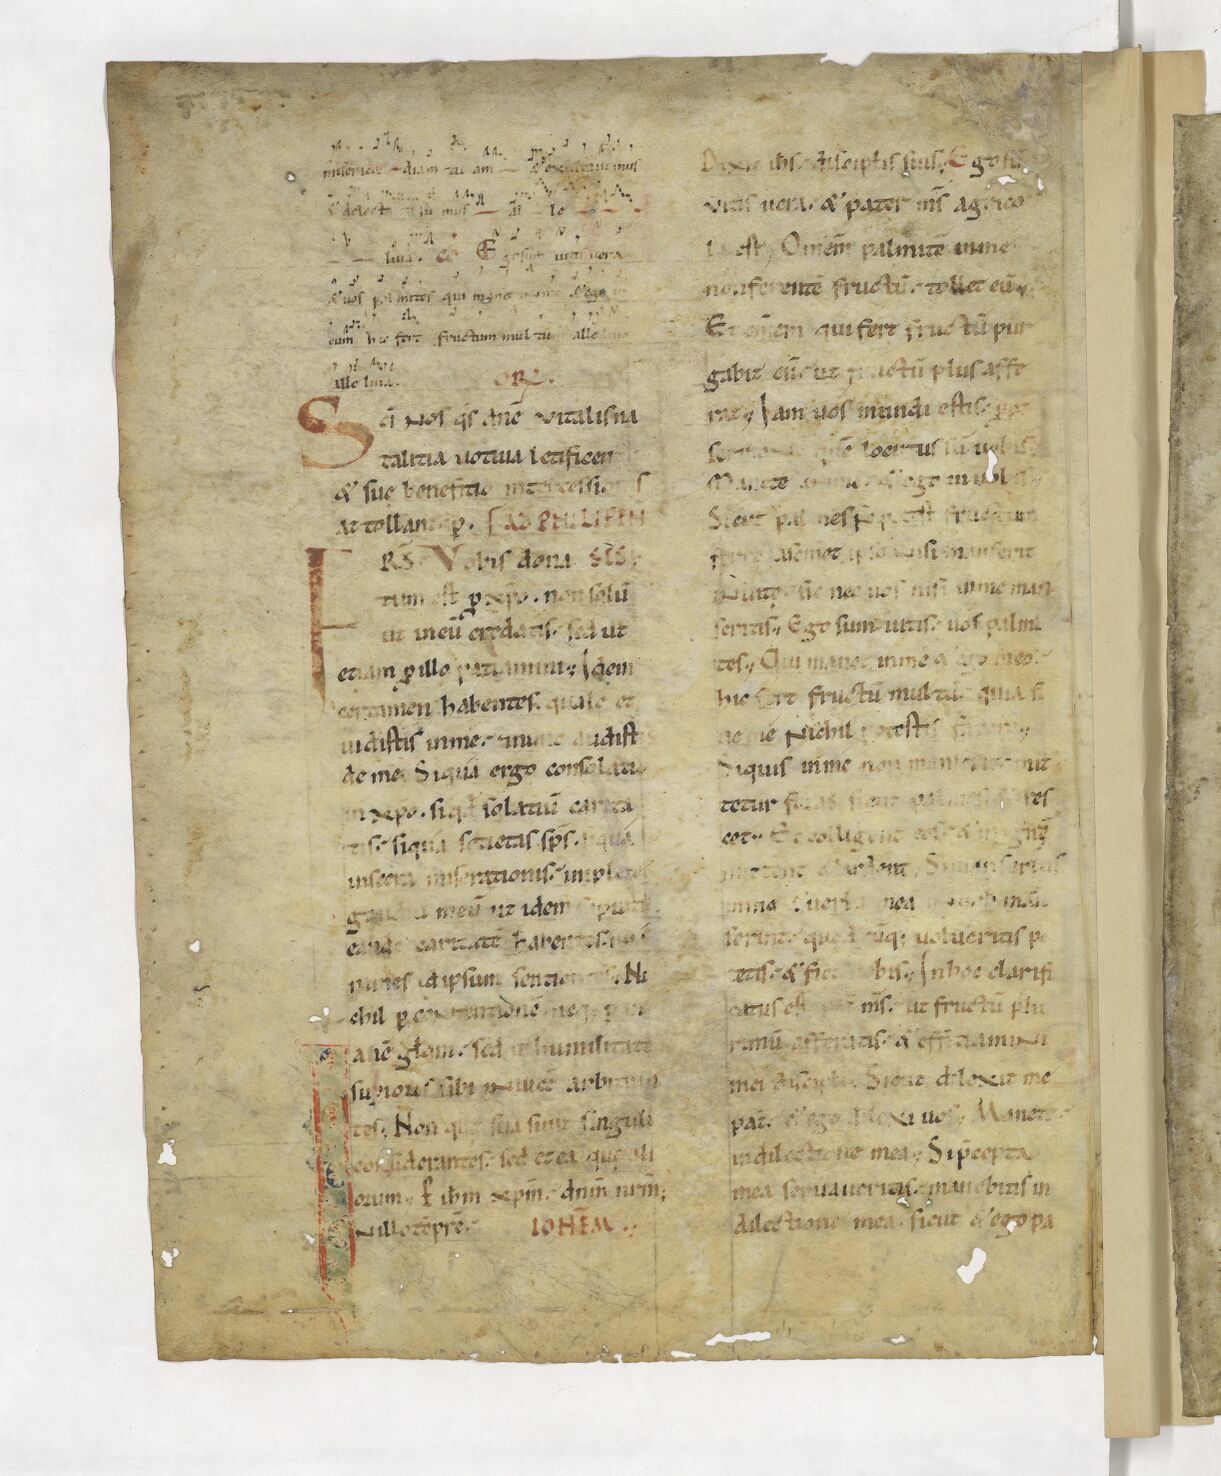 misericor — diam tu am — & exultauimus
& delecta ti su mus — al — le — —
— — luia. CO Ego sum uitis uera
& uos palmites qui manet in me & ego in
eum hic fert fructum mul tum alle luia
alle luia. OR̃.
Sc̄i Nos q̄s dn̄e Vitalis na
talitia uotiua letificen
& sue benefitio intercessionis
at tollant p. AD PHILIPEN
FR̄S Vobis dona
tum est p xp̄o. non solū
ut in eū credatis. sed ut
etiam p illo patiamini. Idem
certamen habentes. quale et
uidistis in me. & nunc audist
de me. Siqua ergo consolatio
in xp̄o. siqd̄ solatiū carita
tis. siqua societas sp̄s. siqua
uiscera miserationis. implete
gaudiū meū ut idem sapiatis
eandē caritatē habentes.
nimes id ipsum sentientes. Ni
chil p contentionē neq; p in
anē glam. sed in humilitate
supiores sibi inuicē arbitran
tes. Non que sua sunt singuli
considerantes. sed et ea que ali
orum. P ihm xp̄m. dnm nr̄m;
In illo tēpr̄e. IOHEM.
Dixit ihs discipl̄is suis. Ego sū
uitis uera. & pater m̄s agrico
la est. Omēm palmitē in me
non ferentē fructū. tollet eū.
Et omēm qui fert fructū pur
gabit eū. ut fructū plus affe
rat. Iam uos mundi estis. ppt
sermonē quē locutus sū uobis.
Manete in me. & ego in uobis.
Sicut palmes n̄ potest fructum
ferre a semet ipso. nisi manserit
in uite. sic nec uos nisi in me man
seritis. Ego sum uitis. uos palmi
tes. Qui manet in me & ego in eo.
hic fert fructū multū. quia si
ne me Nichil potestis facere.
Siquis in me non manserit. mit
tetur foras sicut palmes. & ares
cet. Et colligent eos. & in ignē
mittent & ardent. Si manseritis
in me. & uerba mea in uob̄ man
serint. quodcūq; uolueritis pe
tetis. & fiet uobis. In hoc clarifi
catus est pat̄ m̄s. ut fructū plu
rimū afferatis. & efficiamini
mei discipl̄i. Sicut dilexit me
pat̄. & ego dilexi uos. Manete
in dilectione mea. Si p̄cepta
mea seruaueritis. manebitis in
dilectione mea. sicut & ego pa